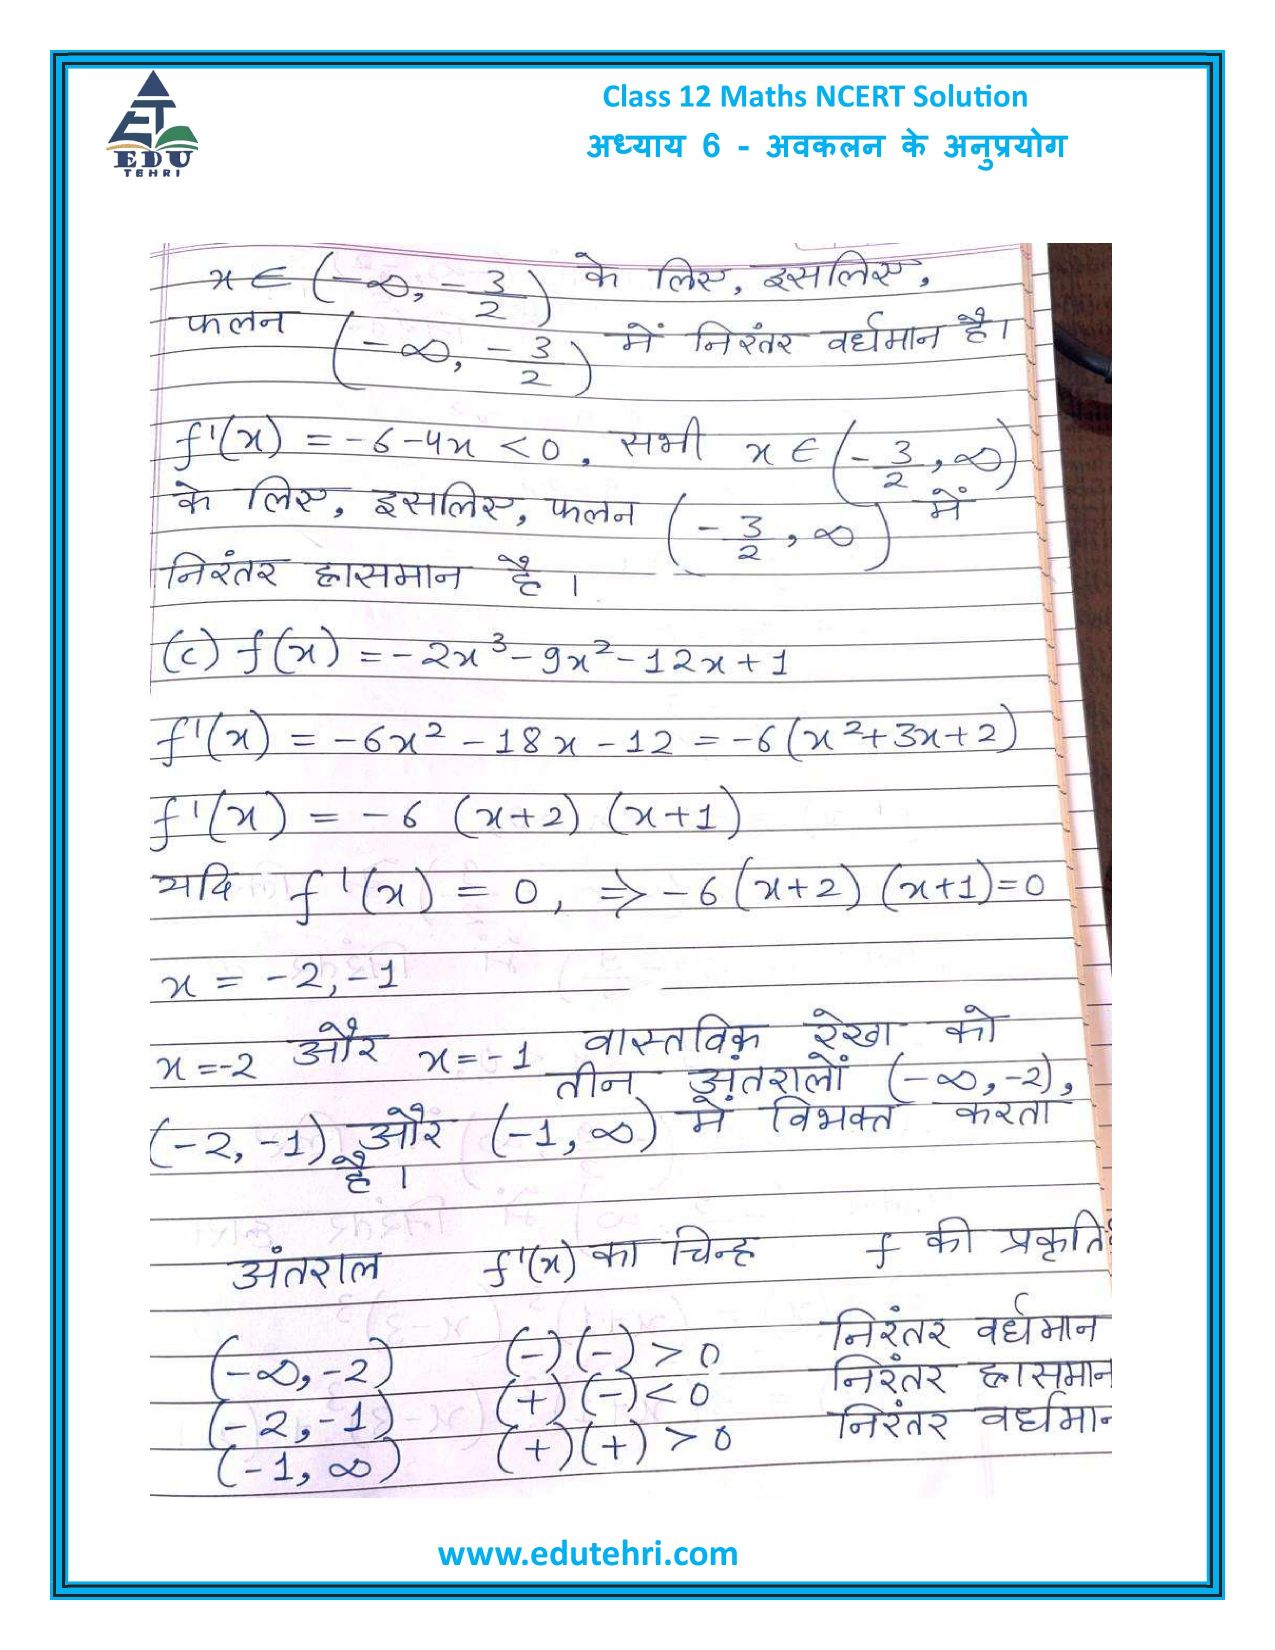 Class 12 Maths NCERT Solution
अध्याय 6 - अवकलन के अनुप्रयोग
ET
EDU
TEHRI
x ∈ (-∞, -3/2) के लिए, इसलिए,
फलन (-∞, -3/2) में निरंतर वर्धमान है।
f'(x) = -6-4x < 0, सभी x ∈ (-3/2, ∞)
के लिए, इसलिए, फलन (-3/2, ∞) में
निरंतर ह्रासमान है ।
(c) f(x) = -2x³-9x²-12x+1
f'(x) = -6x² - 18x - 12 = -6(x²+3x+2)
f'(x) = -6 (x+2) (x+1)
यदि f'(x) = 0, ⇒ -6(x+2) (x+1)=0
x = -2, -1
x = -2 और x = -1 वास्तविक रेखा को
तीन अंतरालों (-∞, -2),
(-2, -1) और (-1, ∞) में विभक्त करता
है ।
अंतराल f'(x) का चिन्ह f की प्रकृति
(-∞, -2) (-)(-) > 0 निरंतर वर्धमान
(-2, -1) (+)(-) < 0 निरंतर ह्रासमान
(-1, ∞) (+)(+) > 0 निरंतर वर्धमान
www.edutehri.com